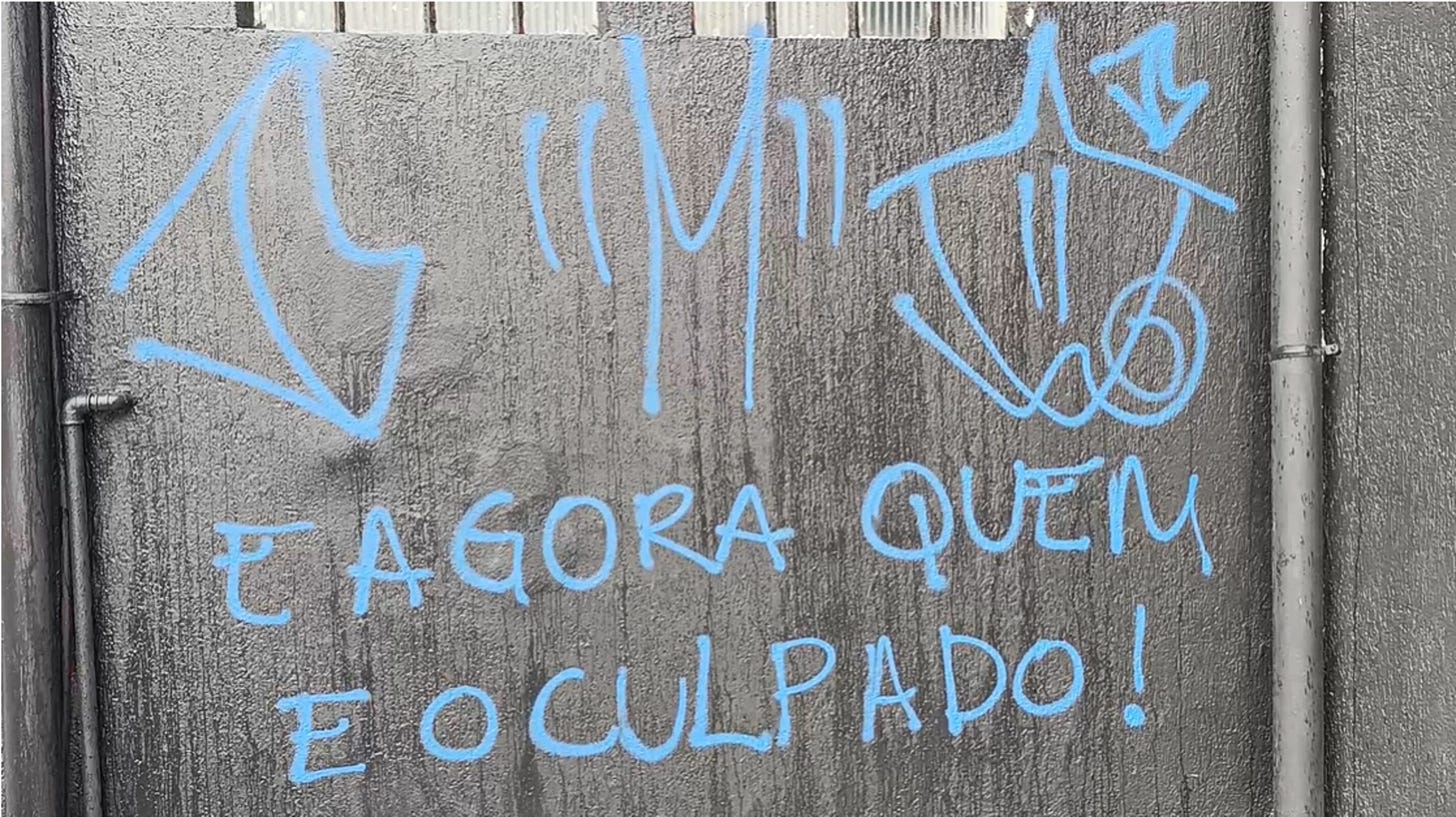 E AGORA QUEM
E O CULPADO!